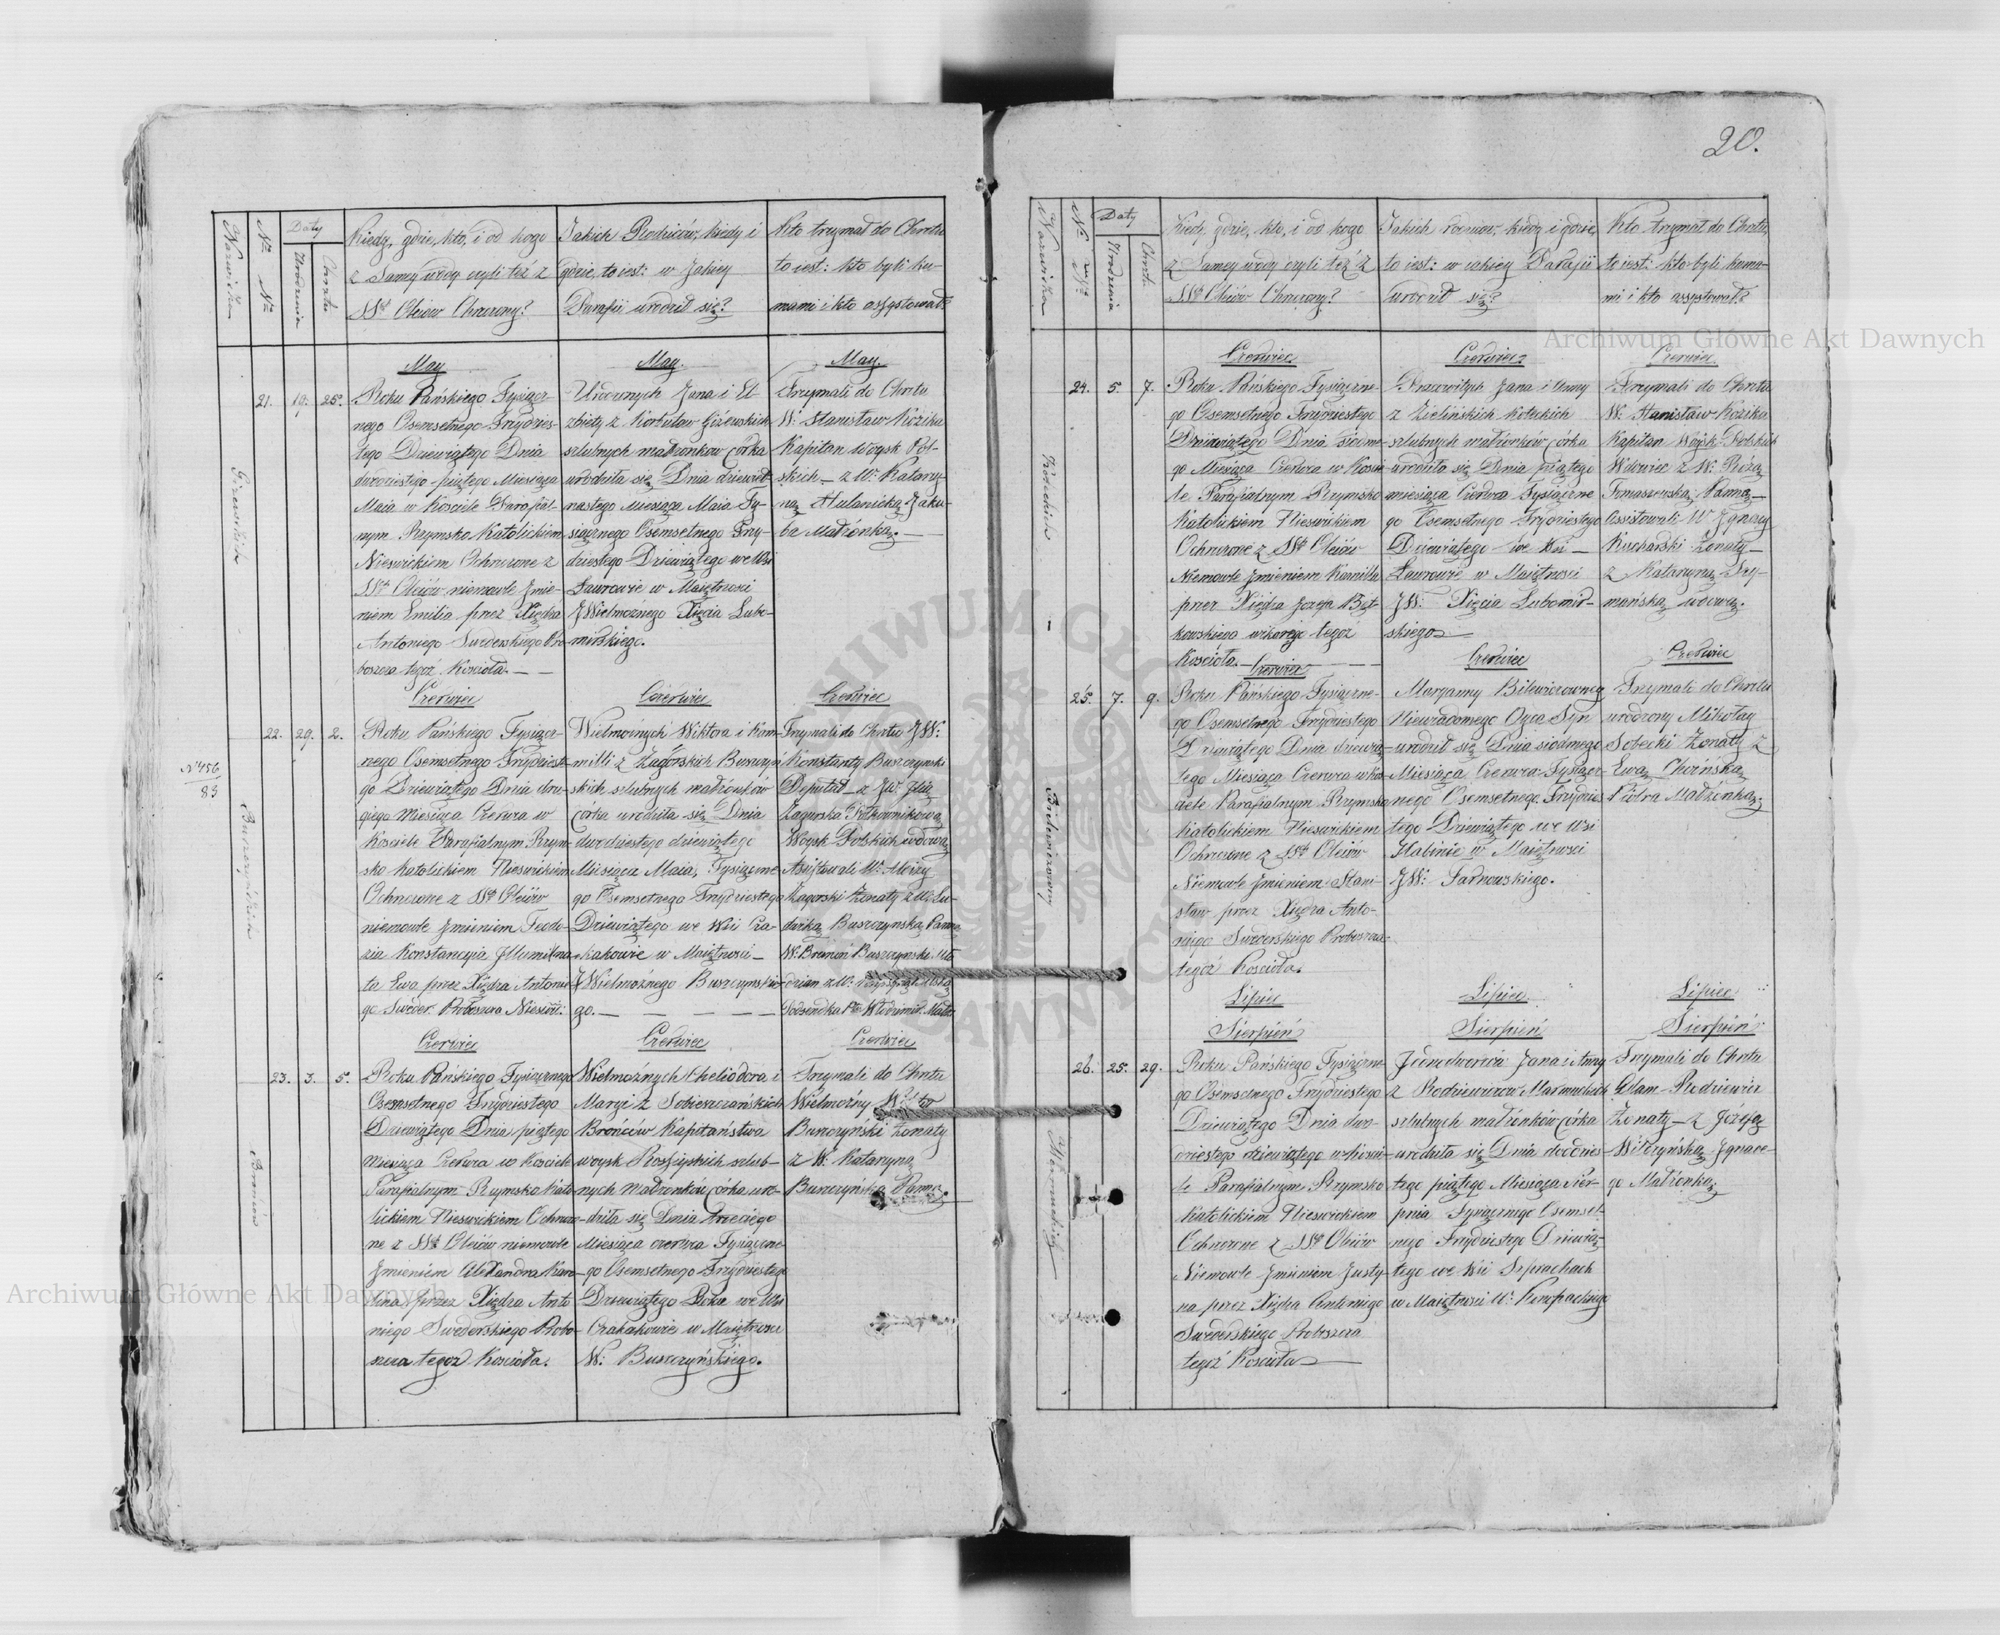 20.
Nazwiska
N.° N.°
Daty
Urodzenia
Chrztu
Kiedy, gdzie, kto, i od kogo
z Samey wody czyli też z
SSch Oleiow Chrzczony?
Jakich Rodziców, kiedy i
gdzie, to iest: w Jakiey
Parafii urodził się?
Kto trzymał do Chrztu
to iest: kto byli ku-
mami i kto assystował?
May
21. 19. 25.
Roku Pańskiego Tysiącz-
nego Osemsetnego Trzydzies-
tego Dziewiątego Dnia
dwudziestego piątego Miesiąca
Maia w Kościele Parafial-
nym Rzymsko Katolickiem
Nieswickiem Ochrzczone z
SSch Oleiów niemowle Jmie-
niem Emilia przez Xiędza
Antoniego Swederskiego Pro-
boszcza tegoż Kościoła.
May.
Urodzonych Jana i El-
żbiety z
szlubnych małżonkow córka
urodziła się Dnia dziewięt-
nastego miesiąca Maia Ty-
siącznego Osemsetnego Trzy-
dziestego Dziewiątego we Wsi
Ławrowie w Maiętności
JWielmożnego Xięcia Lubo-
mirskiego.
May.
Trzymali do Chrztu
W: Stanisław Kozika
Kapitan Woysk Pol-
skich z W: Katarzy-
ną Jaku-
ba Małżonką.
Czerwiec
22. 29. 2.
N° 456
83
Roku Pańskiego Tysiącz-
nego Osemsetnego Trzydziest-
go Dziewiątego Dnia dru-
giego miesiąca Czerwca w
Kościele Parafialnym Rzym-
sko Katolickiem Nieswickiem
Ochrzczone z SSch Oleiów
niemowle Jmieniem Teodo-
zia Konstancyia Jllumina-
ta Ewa przez Xiędza Antonie-
go Sweder. Proboszcza Nieswic:
Czerwiec
Wielmożnych Wiktora i Kam-
milli z Zagórskich Buszczyn-
skich szlubnych małżonków
Córka urodziła się Dnia
dwudziestego dziewiątego
Miesiąca Maia, Tysiączne-
go Osemsetnego Trzydziestego
Dziewiątego we Wsi Cza-
kakowie w Maiętności
JWielmożnego Buszczyńskie-
go.
Czerwiec
Trzymali do Chrztu JW:
Konstanty Buszczynski
Deputat z JW:
Zagurską Półkownikową
Woysk Polskich wdową
Asistowali W:
Zagorski Żonaty z W: Lu-
dwiką Buszczynską Panną
W: Buszczynski
Czerwiec
23. 3. 5.
Roku Pańskiego Tysiącznego
Osemsetnego Trzydziestego
Dziewiątego Dnia piątego
miesiąca Czerwca w Kościele
Parafialnym Rzymsko Kato-
lickiem Nieswickiem Ochrzczo-
ne z SSch Oleiów niemowle
Jmieniem Alexandra Karo-
lina przez Xiędza Anto-
niego Swederskiego Probo-
szcza tegoż Kościoła.
Czerwiec
Wielmożnych Cheliodora i
Maryi z Sobieszczańskich
Brońców Kapitaństwa
woysk Rossyiskich szlub-
nych Małżonków Córka uro-
dziła się Dnia trzeciego
Miesiąca czerwca Tysiączne-
go Osemsetnego Trzydziestego
Dziewiątego Roku we Wsi
Czakakowie w Maiętności
W: Buszczyńskiego.
Czerwiec
Trzymali do Chrztu
Wielmożny
Buszczyński Żonaty
z W: Katarzyną
Buszczyńską Panną.
Nazwiska
N.° N.°
Daty
Urodzenia
Chrzt.
Kiedy, gdzie, kto, i od kogo
z Samey wody czyli też z
SSch Oleiów Chrzczony?
Jakich Rodziców, kiedy i gdzie,
to iest: w iakiey Parafii
urodził się?
Kto trzymał do Chrztu,
to iest: kto byli kumo-
mi i kto assystował?
Czerwiec
24. 5. 7.
Roku Pańskiego Tysiączne-
go Osemsetnego Trzydziestego
Dziewiątego Dnia siódme-
go Miesiąca Czerwca w Koście-
le Parafialnym Rzymsko
Katolickiem Nieswickiem
Ochrzczone z SSch Oleiów
Niemowle Jmieniem Kamilla
przez Xiędza Jozefa Bąt-
kowskiego wikarego tegoż
Kościoła.
Czerwiec
Pracowitych Jana i Anny
z Zielińskich
szlubnych małżonków córka
urodziła się Dnia piątego
miesiąca Czerwca Tysiączne-
go Osemsetnego Trzydziestego
Dziewiątego we Wsi
Ławrowie w Maiętności
JW: Xięcia Lubomir-
skiego
Czerwiec
Trzymali do Chrztu
W: Stanisław Kozika
Kapitan Woysk Polskich
Wdowiec z W: Rózą
Tomaszewską Panną
Assistowali W Jgnacy
Kucharski Żonaty
z Katarzyną Szy-
mańską wdową.
Czerwiec
25. 7. 9.
Bilewiczowny
Roku Pańskiego Tysiączne-
go Osemsetnego Trzydziestego
Dziewiątego Dnia dziewią-
tego Miesiąca Czerwca w Koś-
ciele Parafialnym Rzymsko
Katolickiem Nieswickiem
Ochrzczone z SSch Oleiów
Niemowle Jmieniem Stani-
sław przez Xiędza Anto-
niego Swederskiego Proboszcza
tegoż Kościoła.
Czerwiec
Maryanny Bilewiczowney
Niewiadomego Oyca Syn
urodził się Dnia siodmego
Miesiąca Czerwca Tysiącz-
nego Osemsetnego Trzydzies-
tego Dziewiątego we Wsi
Hubinie w Maiętności
JW: Tarnowskiego.
Czerwiec
Trzymali do Chrztu
urodzony Mikołay
Sobecki Żonaty z
Ewą Choińską
Piotra Małżonką;
Lipiec
Lipiec
Lipiec
Sierpień
Sierpień
Sierpień
26. 25. 29.
Roku Pańskiego Tysiączne-
go Osemsetnego Trzydziestego
Dziewiątego Dnia dwu-
dziestego dziewiątego w Koście-
le Parafialnym Rzymsko
Katolickiem Nieswickiem
Ochrzczone z SSch Oleiów
Niemowle Jmieniem Justy-
na przez Xiędza Antoniego
Swederskiego Proboszcza
tegoż Kościoła
Jednodworców Jana i Anny
z Rodziewiczów
szlubnych małżonków córka
urodziła się Dnia dwudzies-
tego piątego Miesiąca Sier-
pnia Tysiącznego Osemset-
nego Trzydziestego Dziewią-
tego we Wsi Szprachach
w Maiętności W:
Trzymali do Chrztu
Adam Rodziewicz
Żonaty z Józefą
Wilczyńską Jgnace-
go Małżonką;
Archiwum Główne Akt Dawnych
Archiwum Główne Akt Dawnych